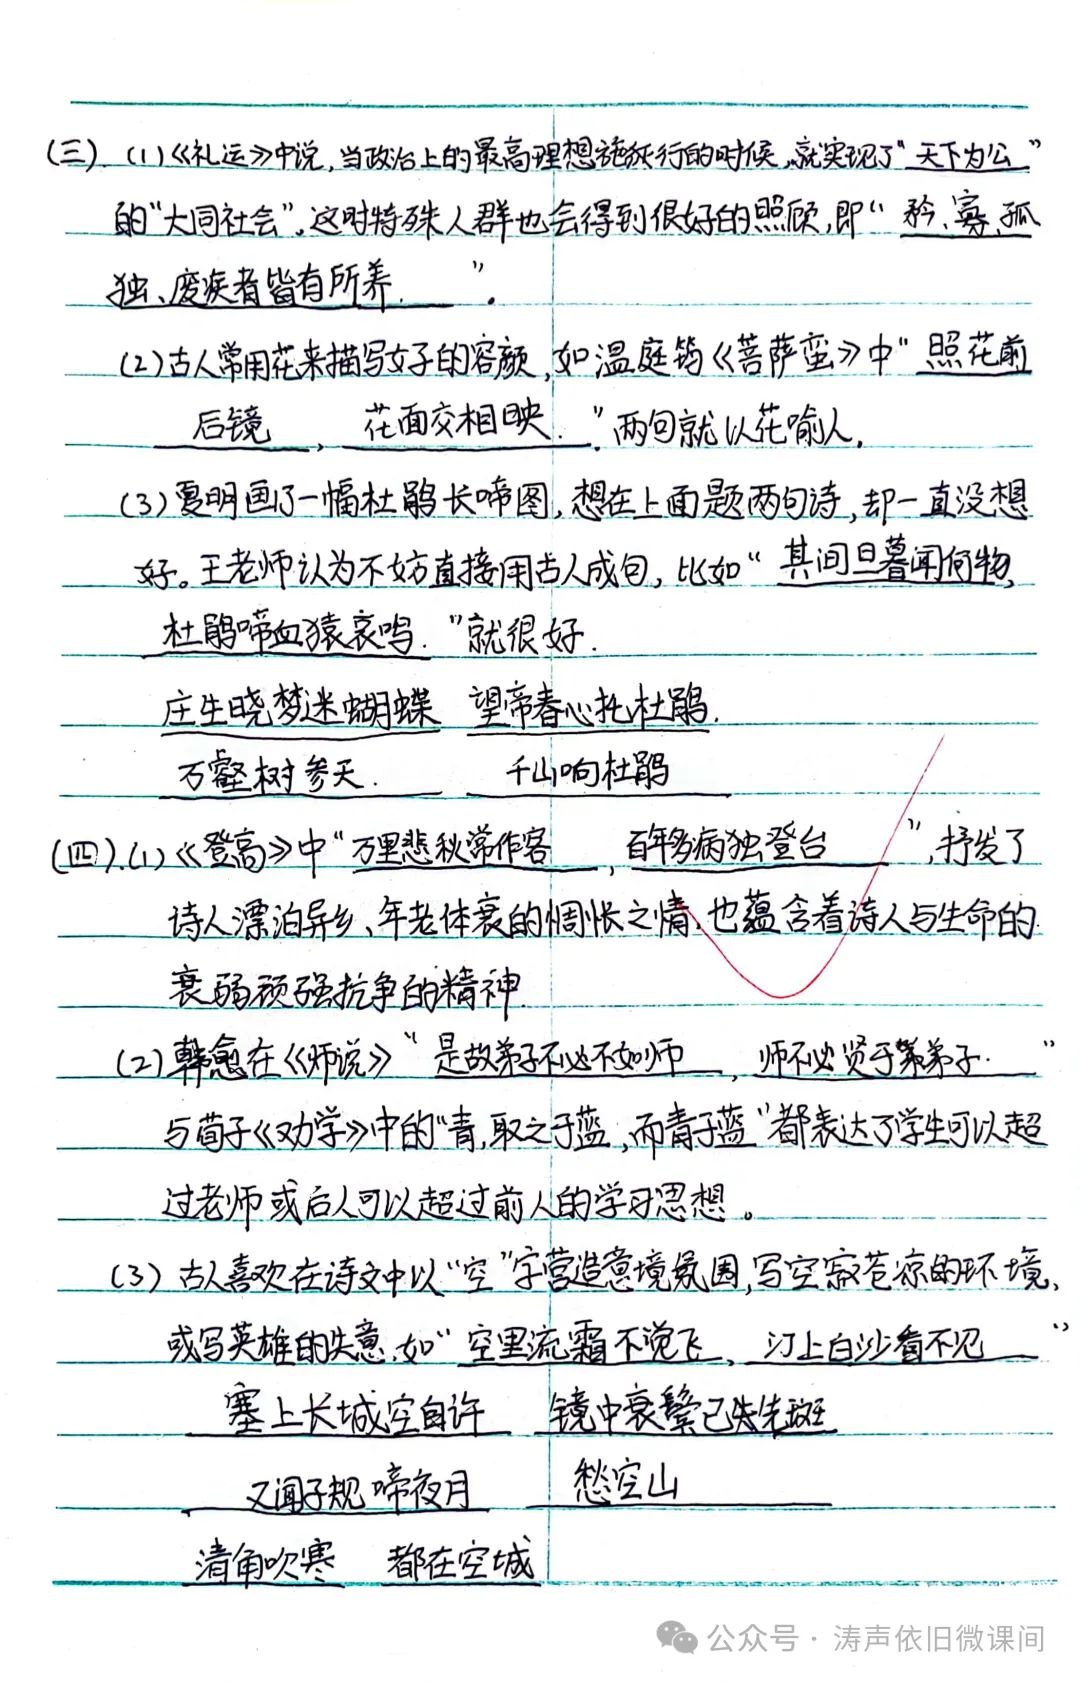 (三).(1)《礼运》中说,当政治上的最高理想施行的时候,就实现了"天下为公"
的"大同社会",这时特殊人群也会得到很好的照顾,即"矜、寡、孤
独、废疾者皆有所养."。
(2)古人常用花来描写女子的容颜,如温庭筠《菩萨蛮》中"照花前
后镜,花面交相映."两句就以花喻人.
(3)夏明画了一幅杜鹃长啼图,想在上面题两句诗,却一直没想
好。王老师认为不妨直接用古人成句,比如"其间旦暮闻何物,
杜鹃啼血猿哀鸣."就很好.
庄生晓梦迷蝴蝶 望帝春心托杜鹃.
万壑树参天. 千山响杜鹃
(四).(1)《登高》中"万里悲秋常作客,百年多病独登台",抒发了
诗人漂泊异乡、年老体衰的惆怅之情,也蕴含着诗人与生命的
衰弱顽强抗争的精神.
(2)韩愈在《师说》"是故弟子不必不如师,师不必贤于弟子."
与荀子《劝学》中的"青,取之于蓝,而青于蓝"都表达了学生可以超
过老师或后人可以超过前人的学习思想。
(3)古人喜欢在诗文中以"空"字营造意境氛围,写空寂苍凉的环境,
或写英雄的失意.如"空里流霜不觉飞,汀上白沙看不见"
塞上长城空自许 镜中衰鬓已先斑
又闻子规啼夜月 愁空山
清角吹寒 都在空城
公众号·涛声依旧微课间